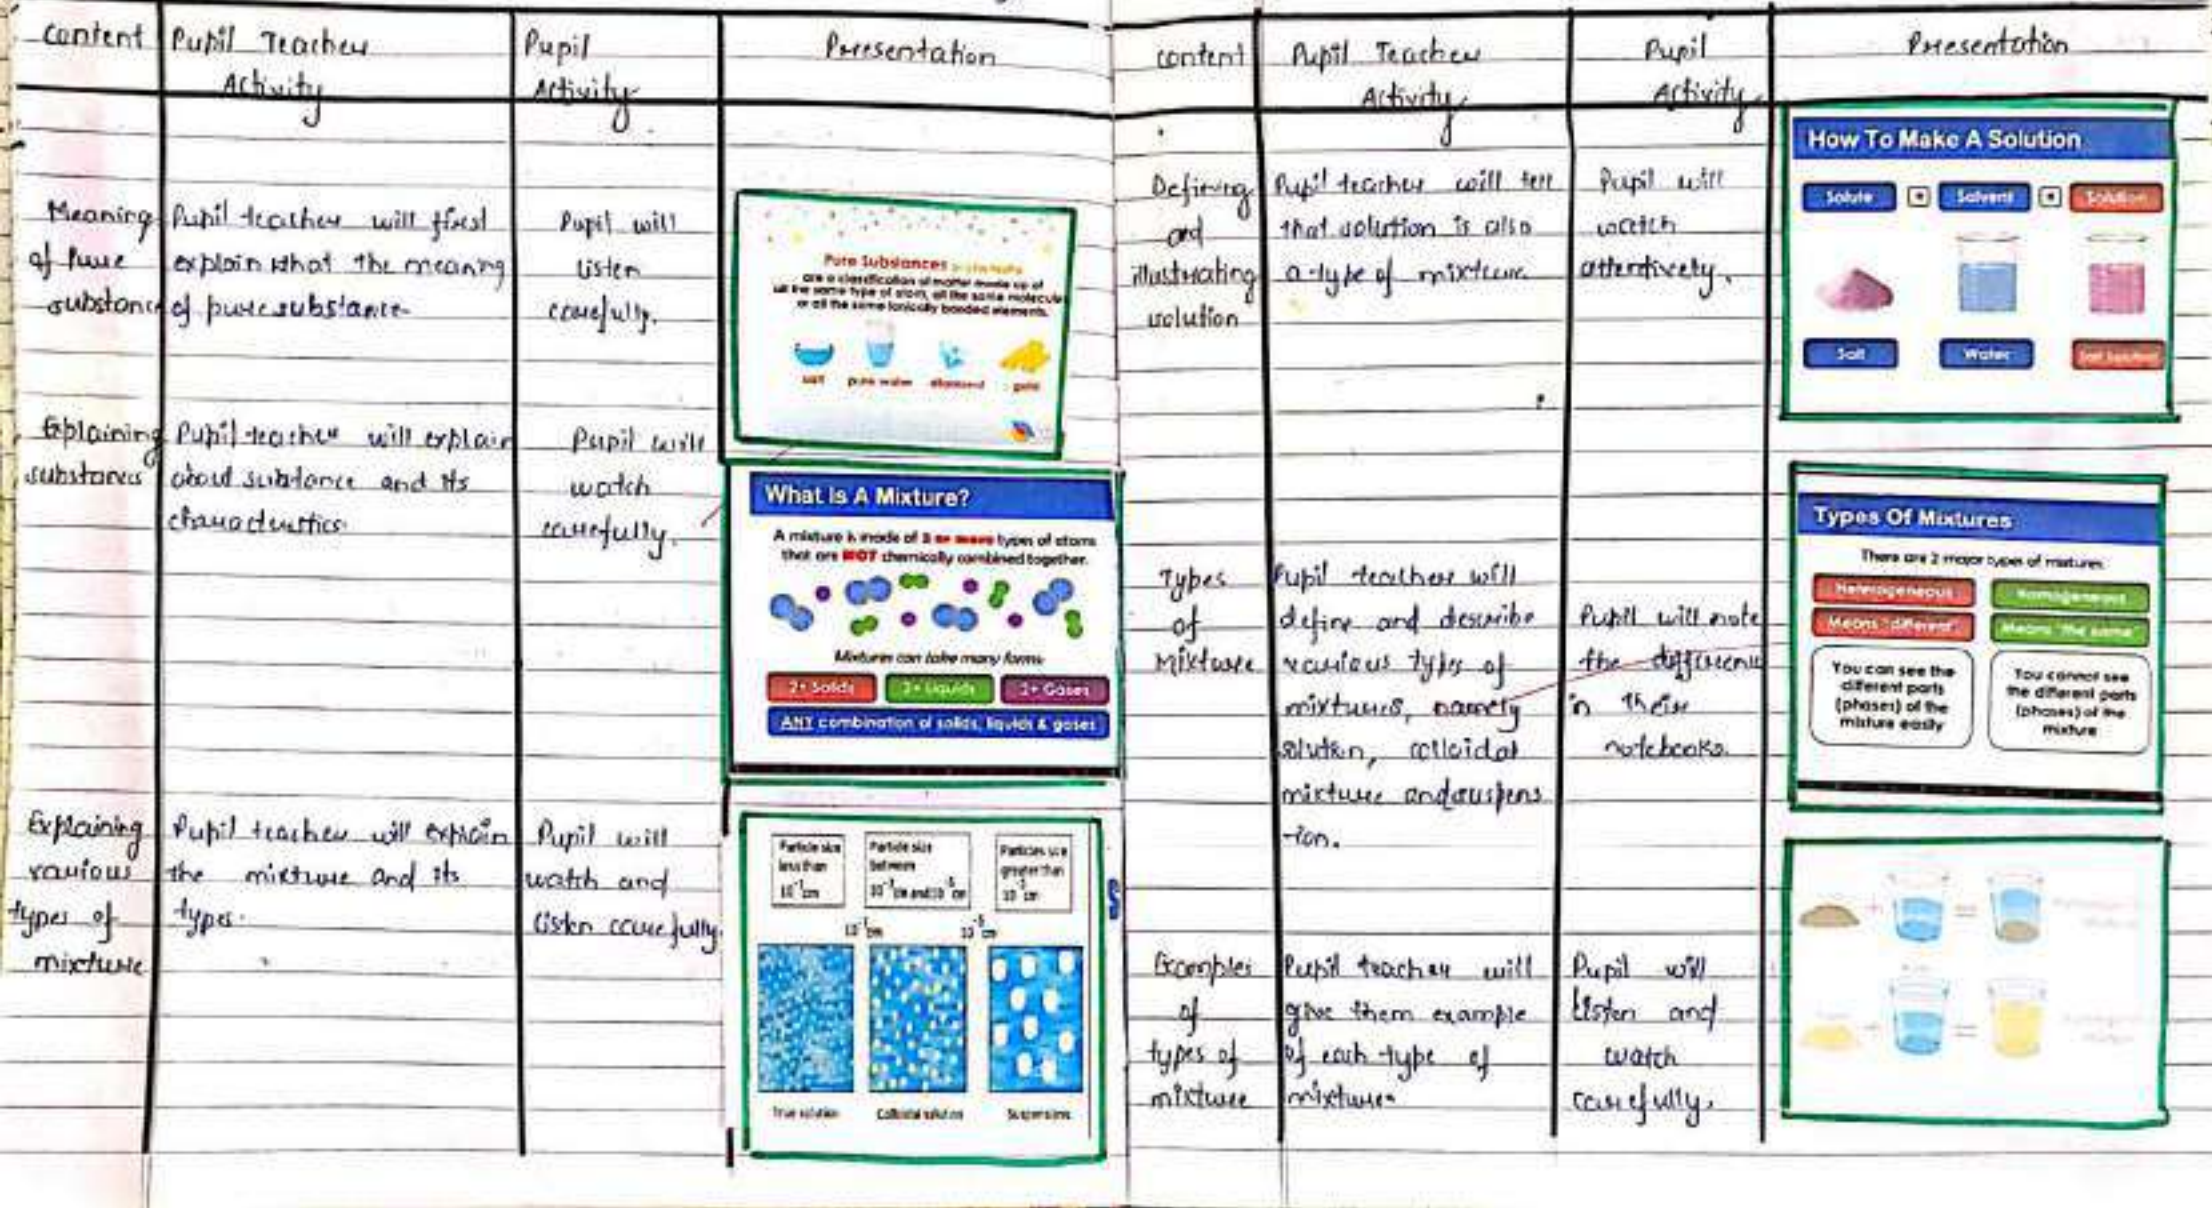 Content
Pupil Teacher
Activity
Pupil
Activity
Presentation
Meaning
of Pure
substance
Pupil teacher will first
explain what the meaning
of pure substance.
Pupil will
listen
carefully.
Pure Substances
are a classification of matter made up of
all the same type of atom, all the same molecule
or all the same ionically bonded elements.
salt
pure water
diamond
gold
Explaining
substances
Pupil teacher will explain
about substance and its
characteristics
Pupil will
watch
carefully.
What Is A Mixture?
A mixture is made of 2 or more types of atoms
that are NOT chemically combined together.
Mixtures can take many forms
2+ Solids
2+ Liquids
2+ Gases
ANY combination of solids, liquids & gases
Explaining
various
types of
mixture
Pupil teacher will explain
the mixture and its
types.
Pupil will
watch and
listen carefully.
Particle size
less than
Particle size
between
Particles size
greater than
True solution
Colloidal solution
Suspensions
content
Pupil Teacher
Activity
Pupil
Activity
Presentation
Defining
and
illustrating
solution
Pupil teacher will tell
that solution is also
a type of mixture
Pupil will
watch
attentively.
How To Make A Solution
Solute
Solvent
Solution
Salt
Water
Salt Solution
Types
of
Mixture
Pupil teacher will
define and describe
various types of
mixtures, namely
solution, colloidal
mixture and suspens
-ion.
Pupil will note
the difference
in their
notebooks.
Types Of Mixtures
There are 2 major types of mixtures
Heterogeneous
Homogeneous
Means "different"
Means "the same"
You can see the
different parts
(phases) of the
mixture easily
You cannot see
the different parts
(phases) of the
mixture
Examples
of
types of
mixture
Pupil teacher will
give them example
of each type of
mixture.
Pupil will
listen and
watch
carefully.